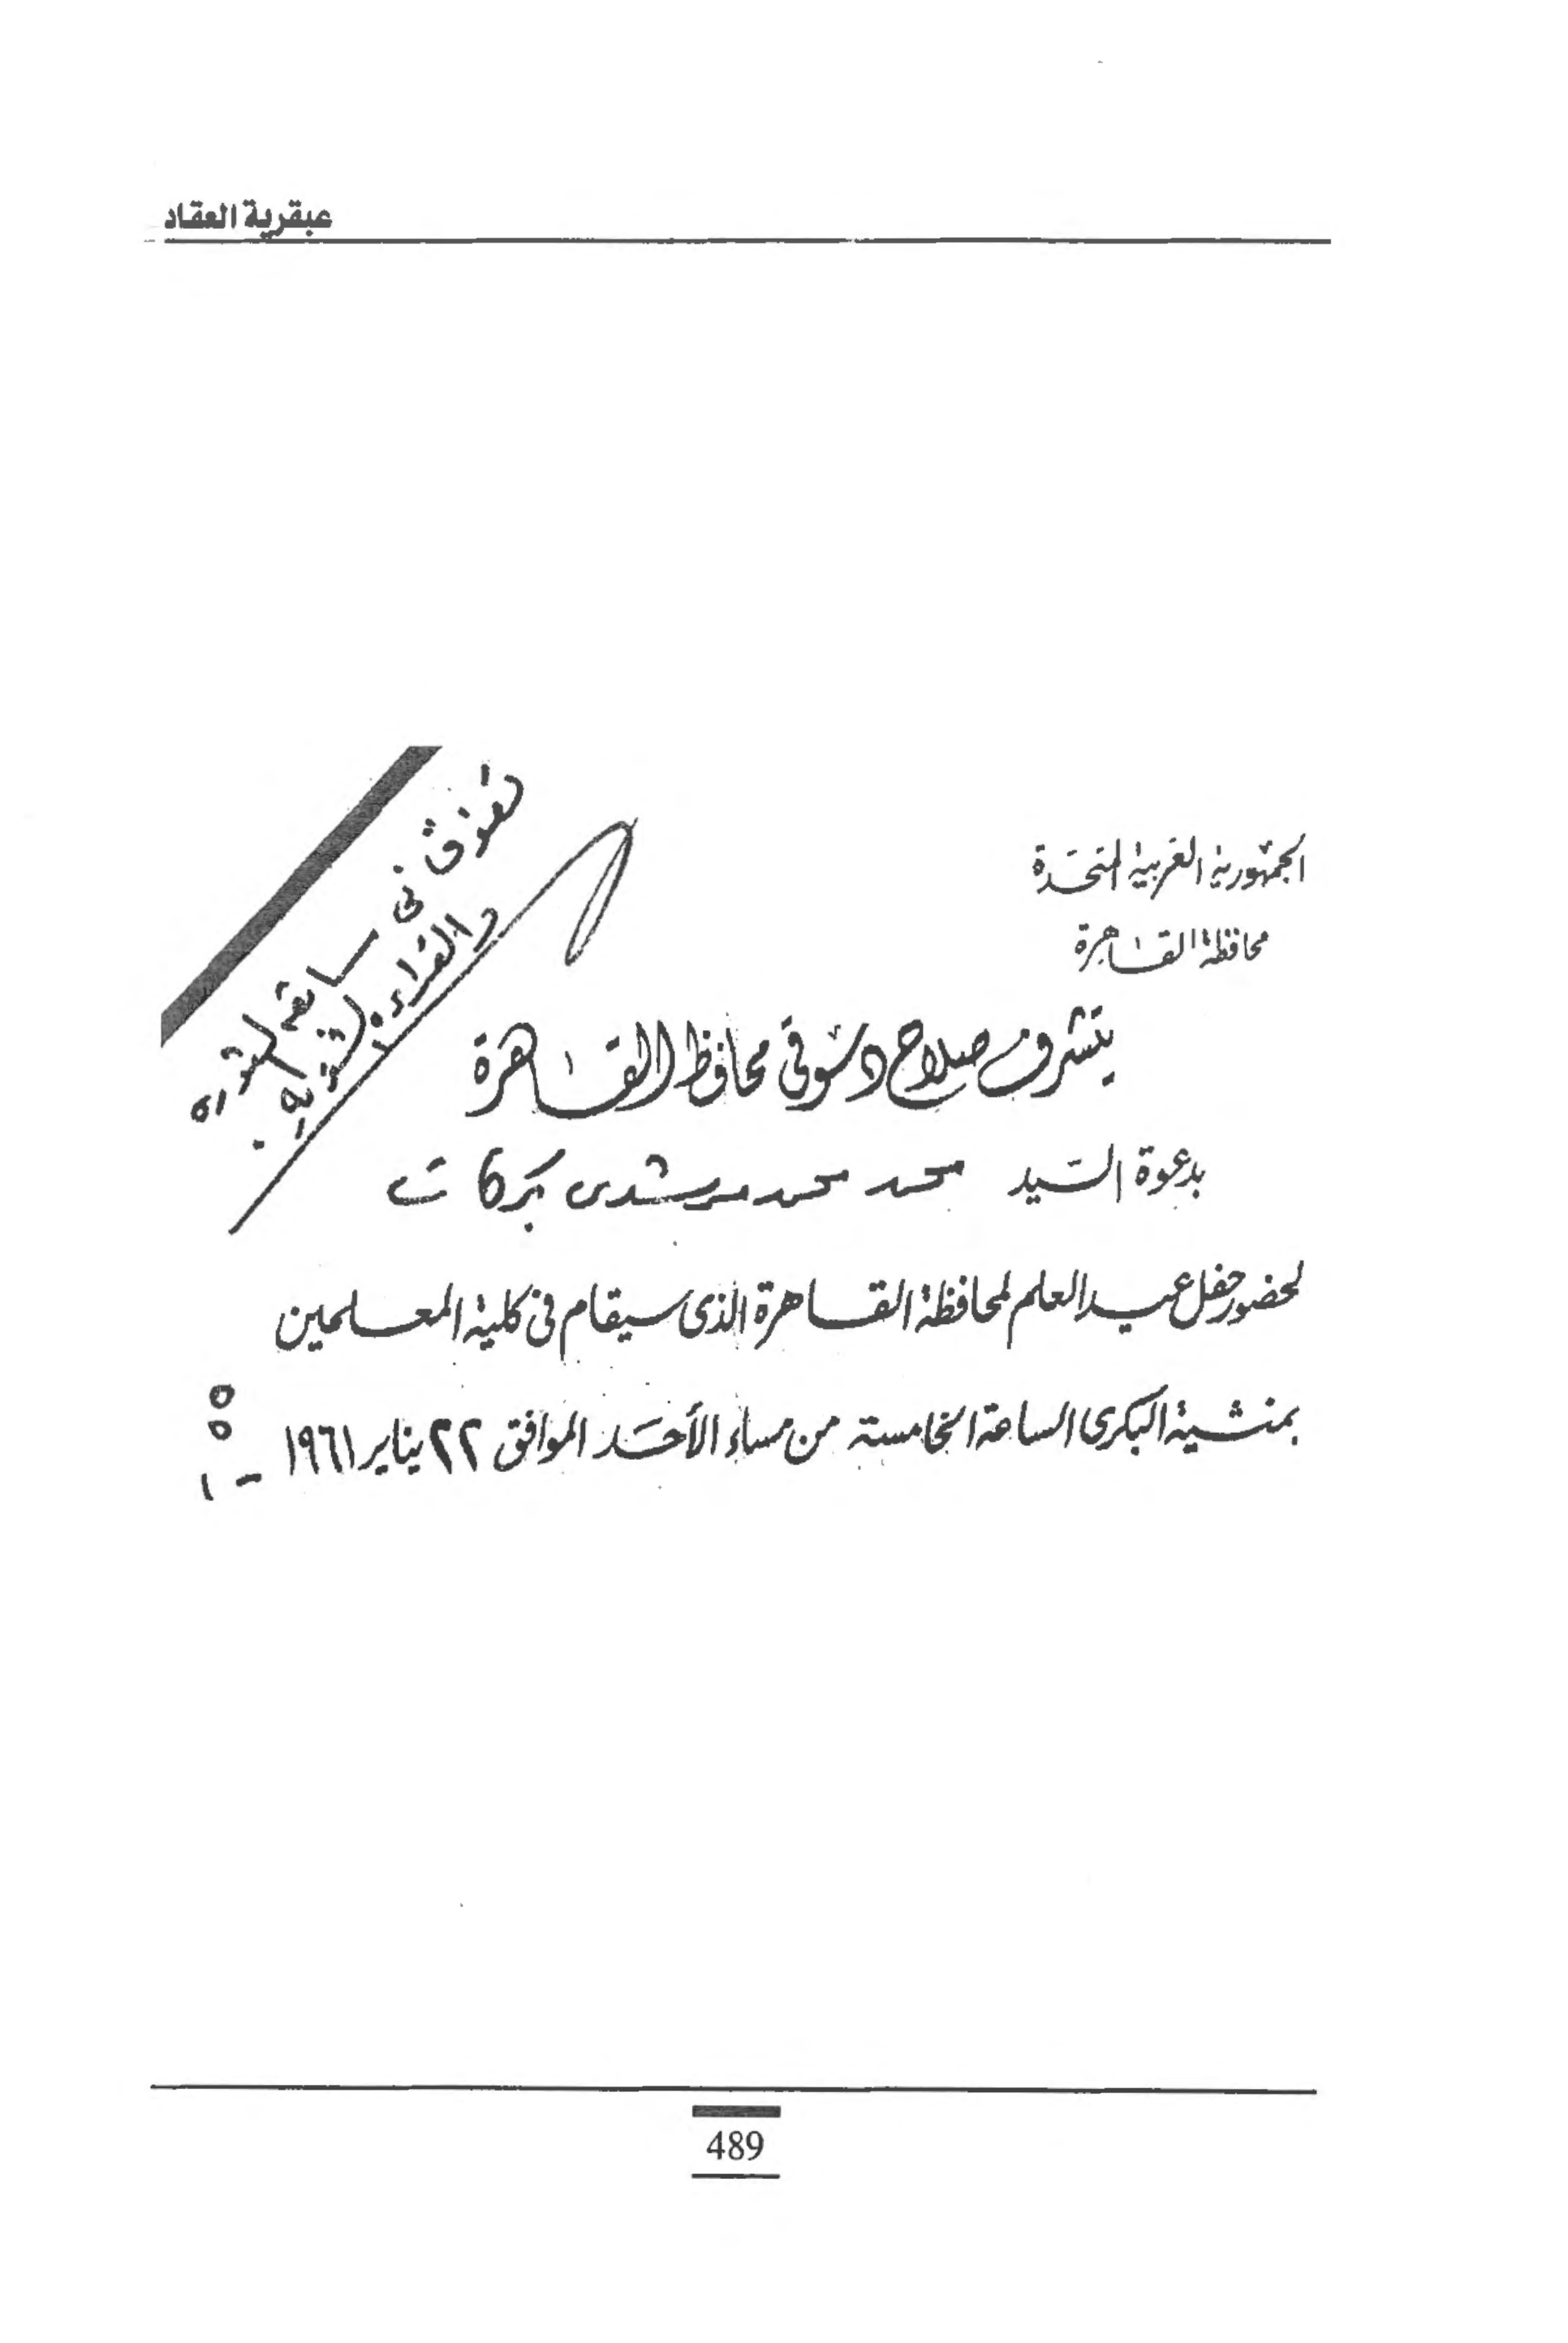 عبقرية العقاد
تفوق في
مسابقة الثورة
والقراءة
الجمهورية العربية المتحدة
محافظة القاهرة
يتشرف صلاح دسوقي محافظ القاهرة
بدعوة السيد محمد محمد مرشدى بركات
لحضور حفل عيد العلم لمحافظة القاهرة الذى سيقام في كلية المعلمين
بمنشية البكرى الساعة الخامسة من مساء الأحد الموافق ٢٢ يناير ١٩٦١
489